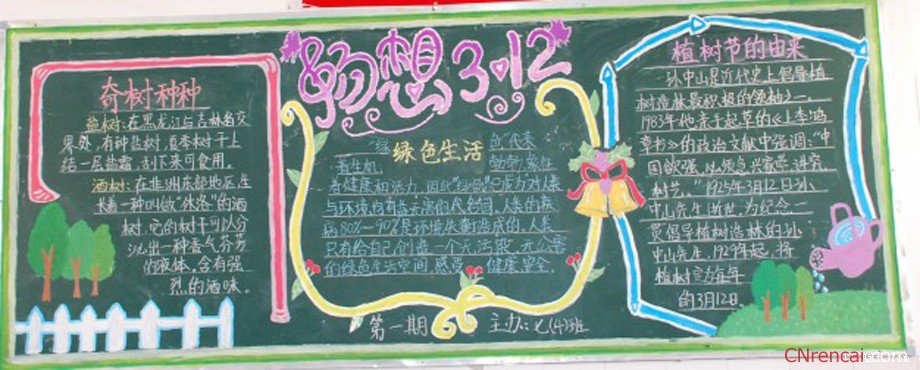 畅想3·12
奇树种种
盐树:在黑龙江与吉林省交
界处,有种盐树,夏季树干上
结一层盐霜,刮下来可食用。
酒树:在非洲东部地区生
长着一种叫做“休洛”的酒
树,它的树干可以分
泌出一种香气芬芳
的液体,含有强
烈的酒味。
绿色生活
“绿色”代表
着生机勃勃,象征
着健康和活力,因此“绿色”已成为对人类
与环境均有益无害的代名词,人类的疾
病80%—90%是环境失衡造成的,人类
只有给自己创造一个无污染、无公害
的绿色生活空间,感受健康,安全。
第一期 主办:七(4)班
植树节的由来
孙中山是近代史上倡导植
树造林最积极的领袖之一,
1983年他亲手起草的《上李鸿
章书》的政治文献中强调:“中
国欲强,急兴农学,讲究
树艺。”1925年3月12日孙
中山先生逝世,为纪念一
贯倡导植树造林的孙
中山先生,1929年起,将
植树定为每年
的3月12日
CNrencai